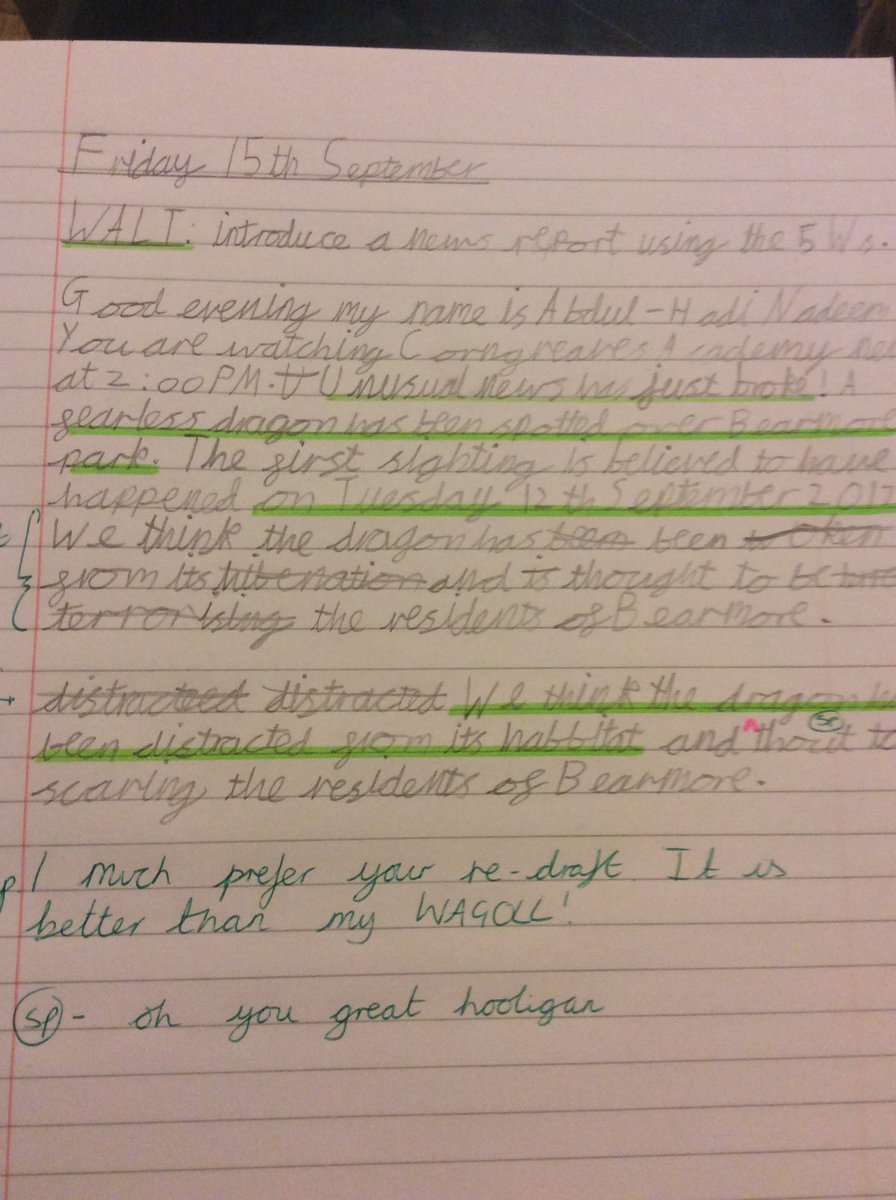 Friday 15th September
WALT: introduce a news report using the 5 Ws.
Good evening my name is Abdul-Hadi Nadeem
You are watching Corngreaves Academy
at 2:00PM. Unusual news has just broke! A
fearless dragon has been spotted over Bearmore
park. The first sighting is believed to have
happened on Tuesday 12th September 2017
We think the dragon has been been woken
from its hibenation and is thought to be
terrorising the residents of Bearmore.
distracteed distracted We think the dragon
been distracted from its habbitat and thout to
sp
scaring the residents of Bearmore.
I much prefer your re-draft. It is
better than my WAGOLL!
sp - oh you great hooligan